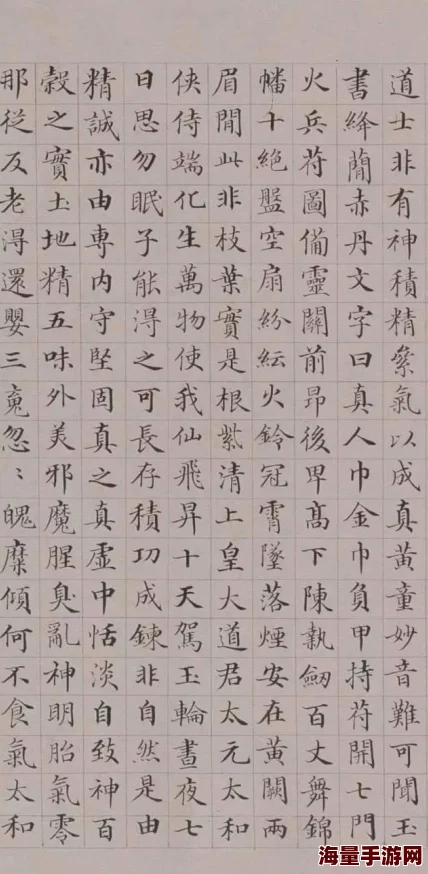 道士非有神積精絫氣以成真黃童妙音難可聞玉
書絳蕳赤丹文字曰真人巾金巾負甲持苻開七門
火兵苻圖備靈關前昂後卑高下陳執劒百丈舞錦
幡十絕盤空扇紛紜火鈴冠霄墜落煙安在黃闕兩
眉閒此非枝葉實是根紫清上皇大道君太元太和
俠侍端化生萬物使我仙飛昇十天駕玉輪晝夜七
日思勿眠子能淂之可長存積功成鍊非自然是由
精誠亦由専內守堅固真之真虛中恬淡自致神百
穀之實土地精五味外美邪魔腥臭亂神明胎氣零
那從反老淂還嬰三䰟忽〻魄糜傾何不食氣太和
海量手游网